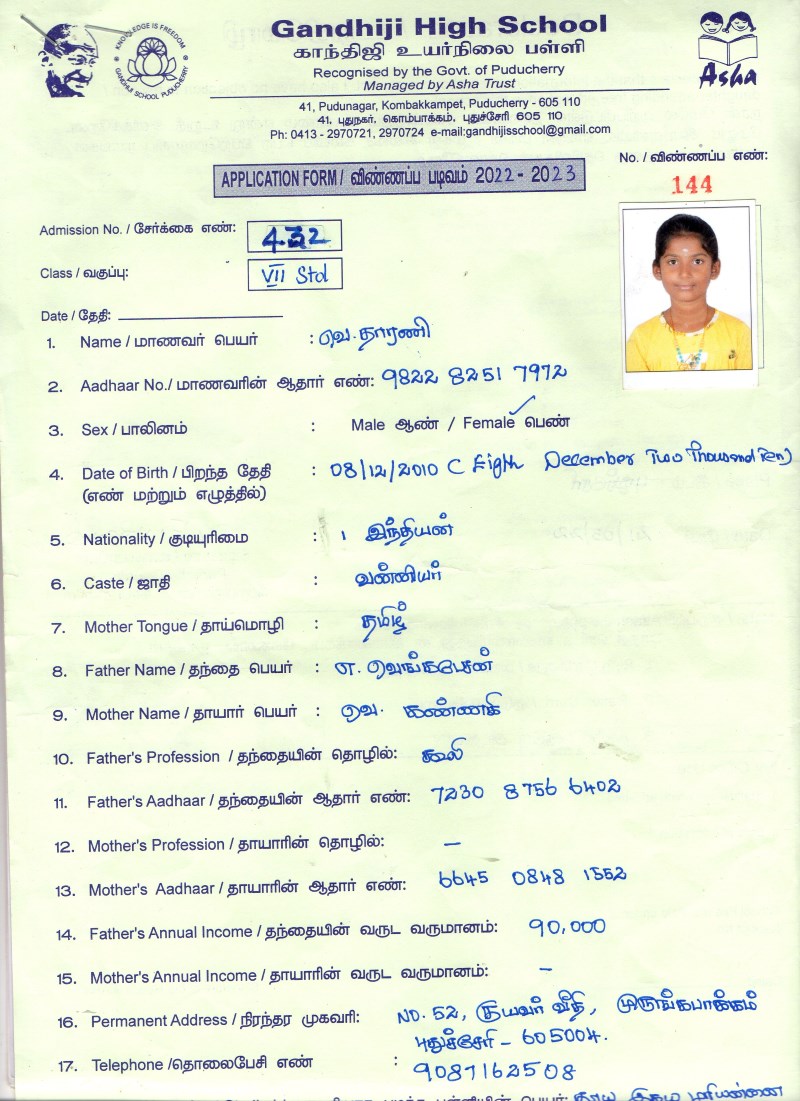 KNOWLEDGE IS FREEDOM
GANDHIJI SCHOOL PUDUCHERRY
Gandhiji High School
காந்திஜி உயர்நிலை பள்ளி
Recognised by the Govt. of Puducherry
Managed by Asha Trust
Asha
41, Pudunagar, Kombakkampet, Puducherry - 605 110
41, புதுநகர், கொம்பாக்கம், புதுச்சேரி 605 110
Ph: 0413 - 2970721, 2970724 e-mail:gandhijisschool@gmail.com
No. / விண்ணப்ப எண்:
144
APPLICATION FORM / விண்ணப்ப படிவம் 2022 - 2023
Admission No. / சேர்க்கை எண்: 432
Class / வகுப்பு: VII Std
Date / தேதி:
1. Name / மாணவர் பெயர் : வெ. தாரணி
2. Aadhaar No./ மாணவரின் ஆதார் எண்: 9822 8251 7972
3. Sex / பாலினம் : Male ஆண் / Female பெண்
4. Date of Birth / பிறந்த தேதி : 08/12/2010 ( Eigth December Two Thousand Ten)
(எண் மற்றும் எழுத்தில்)
5. Nationality / குடியுரிமை : இந்தியன்
6. Caste / ஜாதி : வன்னியர்
7. Mother Tongue / தாய்மொழி : தமிழ்
8. Father Name / தந்தை பெயர் : எ. வெங்கடேசன்
9. Mother Name / தாயார் பெயர் : வெ. கண்ணகி
10. Father's Profession / தந்தையின் தொழில்: கூலி
11. Father's Aadhaar / தந்தையின் ஆதார் எண்: 7230 8756 6402
12. Mother's Profession / தாயாரின் தொழில்: —
13. Mother's Aadhaar / தாயாரின் ஆதார் எண்: 6645 0848 1552
14. Father's Annual Income / தந்தையின் வருட வருமானம்: 90,000
15. Mother's Annual Income / தாயாரின் வருட வருமானம்: –
16. Permanent Address / நிரந்தர முகவரி: NO. 52, குயவர் வீதி, முருங்கபாக்கம்
புதுச்சேரி – 605004.
17. Telephone /தொலைபேசி எண் : 9087162508